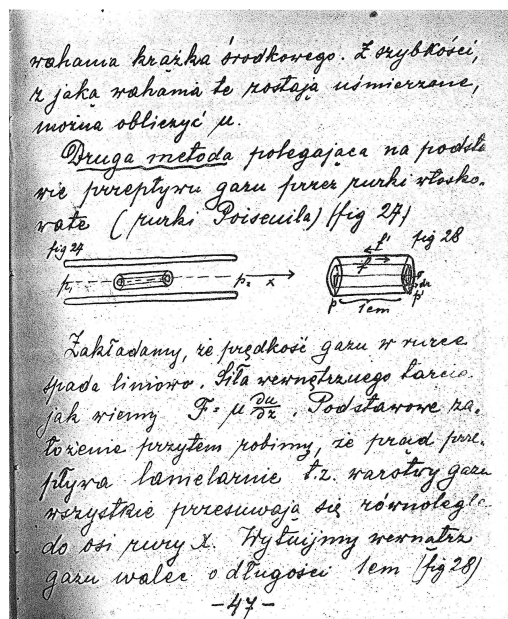 wahania krążka środkowego. Z szybkości,
z jaką wahania te zostają uśmierzone,
można obliczyć μ.
Druga metoda polegająca na podsta
wie przepływu gazu przez rurki włosko-
wate (rurki Poiseuila) (fig 27)
fig 27
fig 28
p₁ p₂ x
f' f r dr p p' 1cm
Zakładamy, że prędkość gazu w rurce
spada liniowo. Siła wewnętrznego tarcia
jak wiemy F = μ ∂u/∂z. Podstawowe za-
łożenie przytem robimy, że prąd prze-
pływa lamelarnie t.z. warstwy gazu
wszystkie przesuwają się równolegle
do osi rury X. Wytnijmy wewnątrz
gazu walec o długości 1cm (fig 28)
-47-